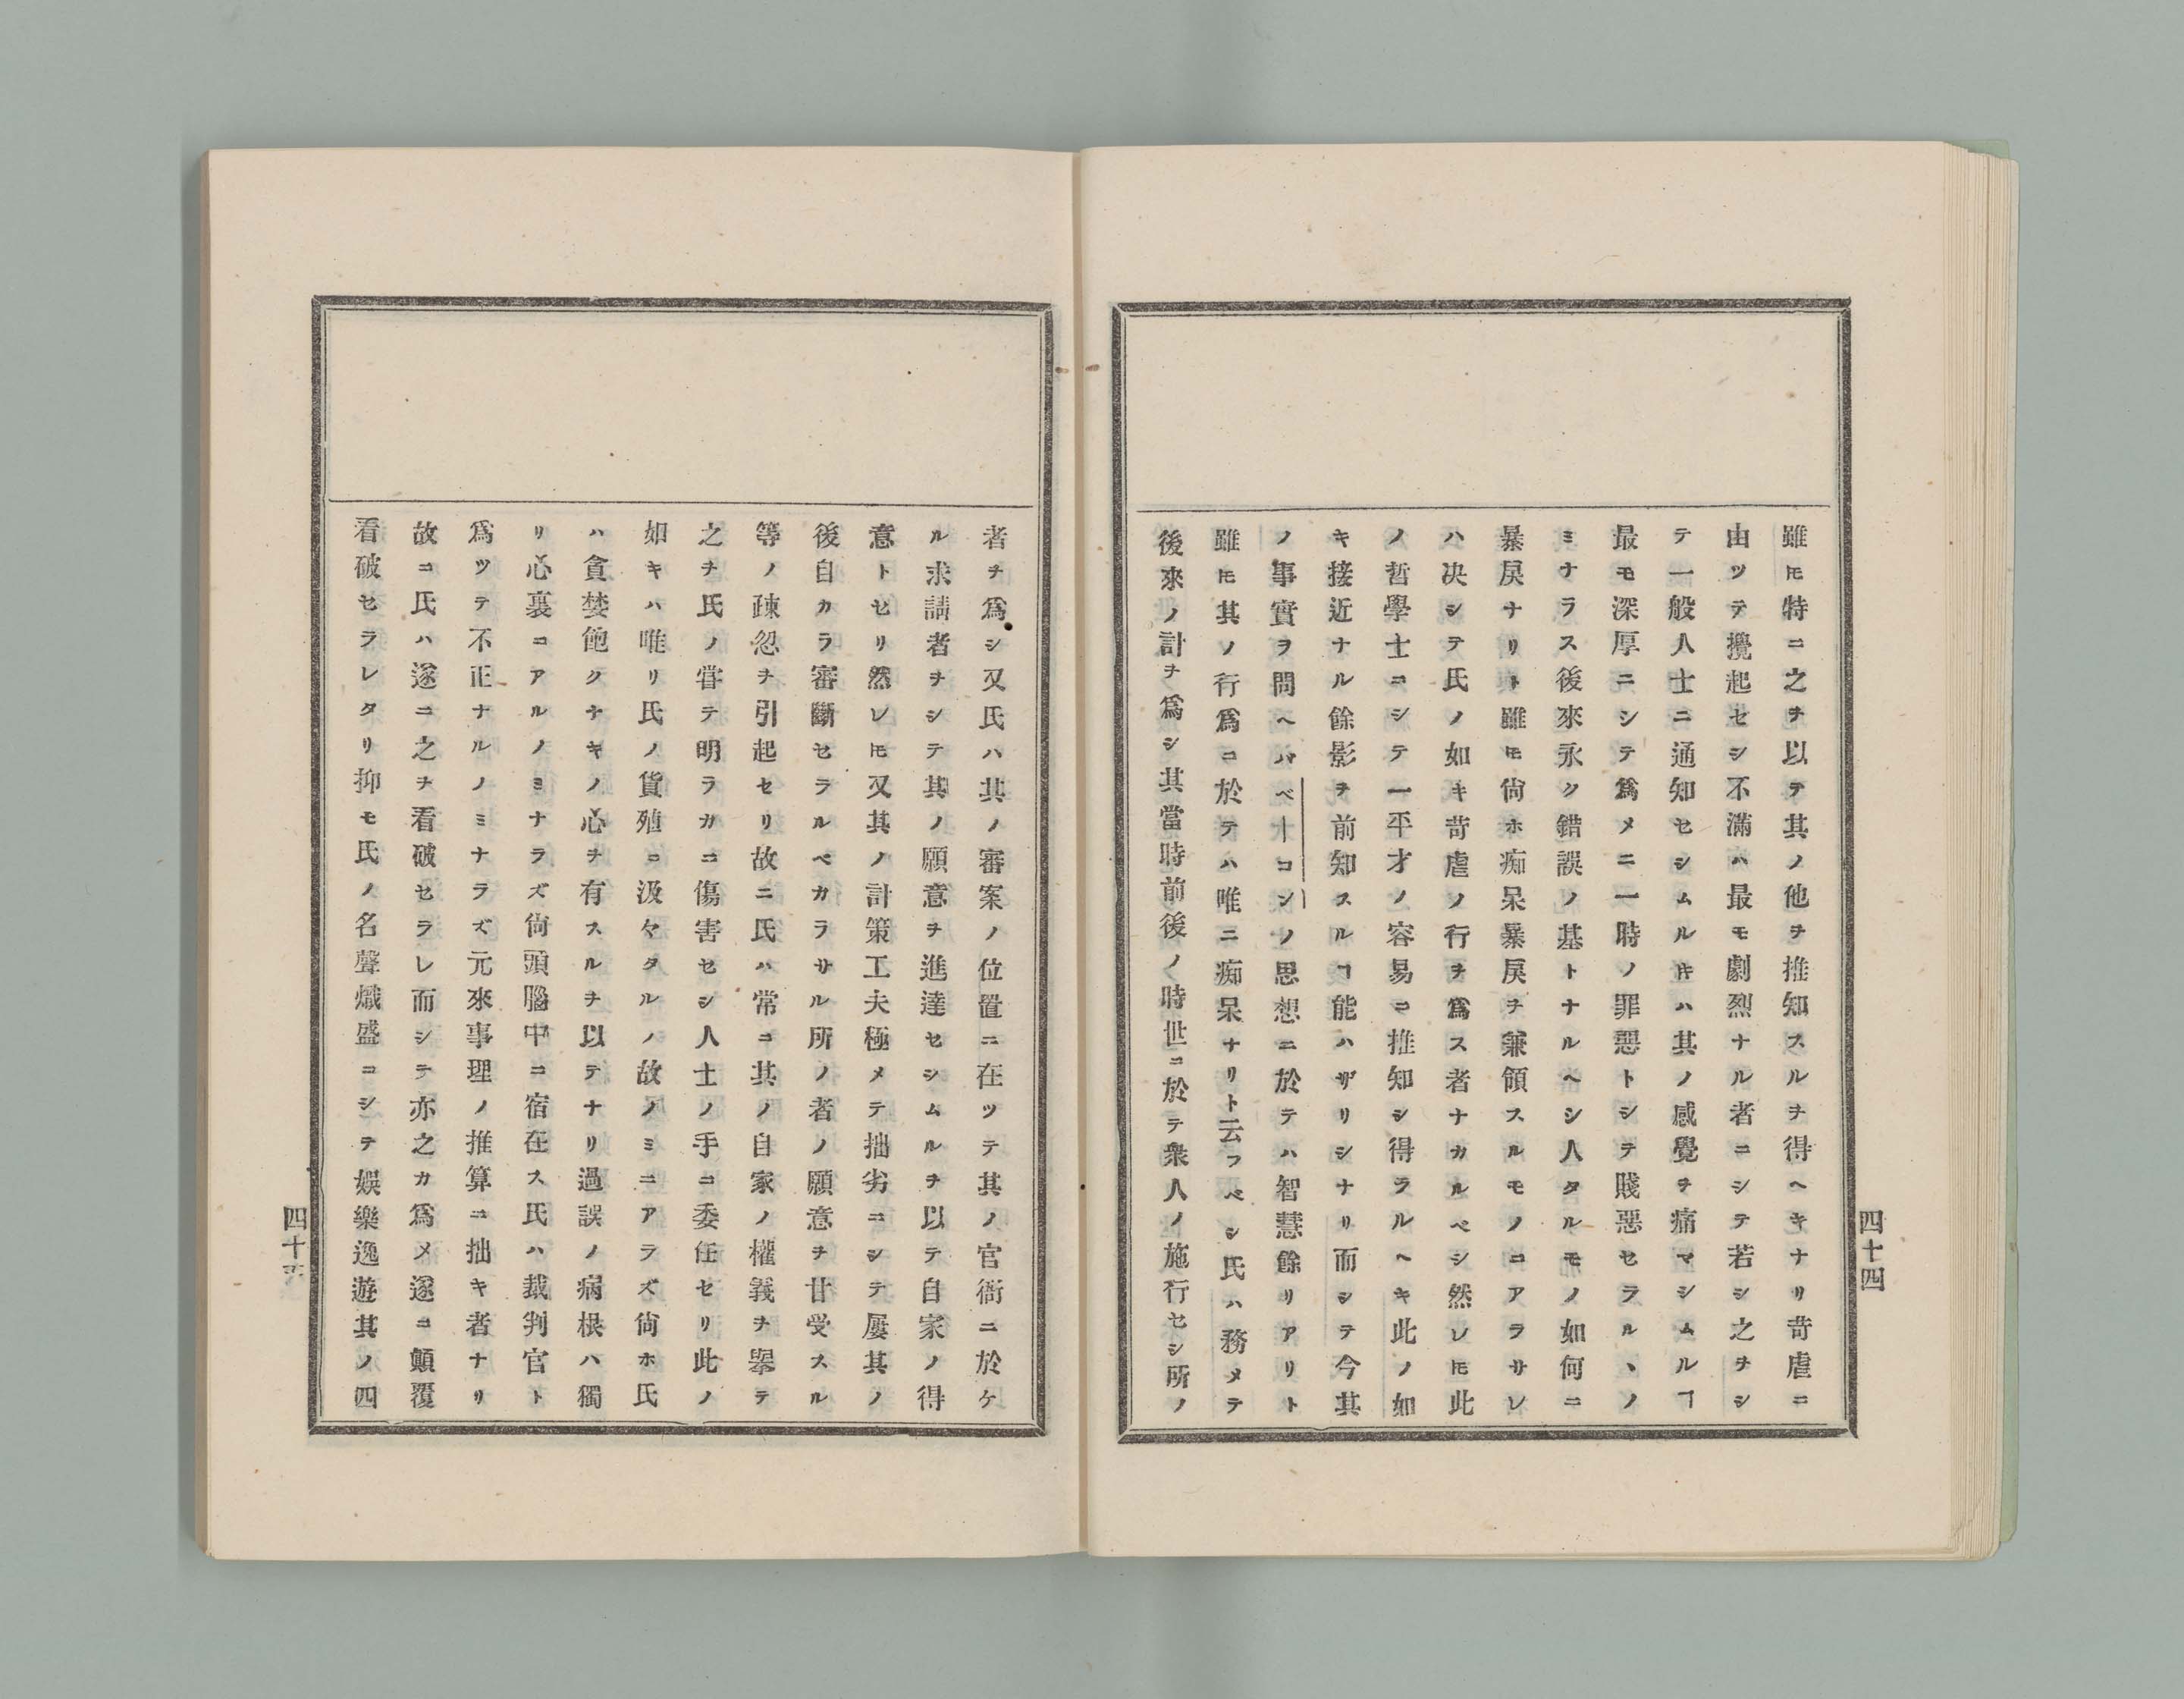 雖𪜈特ニ之ヲ以テ其ノ他ヲ推知スルヲ得ヘキナリ苛虐ニ
由ツテ攪起セシ不滿ハ最モ劇烈ナル者ニシテ若シ之ヲシ
テ一般人士ニ通知セシムル𪜈ハ其ノ感覺ヲ痛マシムルヿ
最モ深厚ニシテ爲メニ一時ノ罪惡トシテ賤惡セラルヽノ
ミナラス後來永ク錯誤ノ基トナルヘシ人タルモノ如何ニ
暴戻ナリト雖𪜈尙ホ痴呆暴戻ヲ兼領スルモノニアラサレ
ハ决シテ氏ノ如キ苛虐ノ行ヲ爲ス者ナカルベシ然レ𪜈此
ノ哲學士ニシテ一平才ノ容易ニ推知シ得ラルヘキ此ノ如
キ接近ナル餘影ヲ前知スルヿ能ハザリシナリ而シテ今其
ノ事實ヲ問ヘハベーコンノ思想ニ於テハ智慧餘リアリト
雖𪜈其ノ行爲ニ於テハ唯ニ痴呆ナリト云フベシ氏ハ務メテ
後來ノ計ヲ爲シ其當時前後ノ時世ニ於テ衆人ノ施行セシ所ノ
四十四
者ヲ爲シ又氏ハ其ノ審案ノ位置ニ在ツテ其ノ官衙ニ於ケ
ル求請者ヲシテ其ノ願意ヲ進達セシムルヲ以テ自家ノ得
意トセリ然レ𪜈又其ノ計策工夫極メテ拙劣ニシテ屢其ノ
後自カラ審斷セラルベカラサル所ノ者ノ願意ヲ甘受スル
等ノ疎忽ヲ引起セリ故ニ氏ハ常ニ其ノ自家ノ權義ヲ擧テ
之ヲ氏ノ甞テ明ラカニ傷害セシ人士ノ手ニ委任セリ此ノ
如キハ唯リ氏ノ貨殖ニ汲々タルノ故ノミニアラズ尙ホ氏
ハ貪婪飽クナキノ心ヲ有スルヲ以テナリ過誤ノ病根ハ獨
リ心裏ニアルノミナラズ尙頭腦中ニ宿在ス氏ハ裁判官ト
爲ツテ不正ナルノミナラズ元來事理ノ推算ニ拙キ者ナリ
故ニ氏ハ遂ニ之ヲ看破セラレ而シテ亦之カ爲メ遂ニ顚覆
看破セラレタリ抑モ氏ノ名聲熾盛ニシテ娯樂逸遊其ノ四
四十五